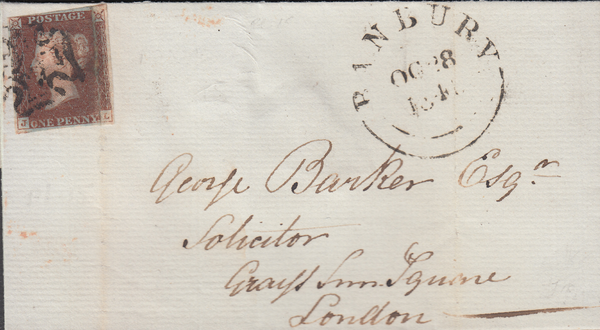 POSTAGE
ONE PENNY
J L
BANBURY
OC 28
George Barker Esqr
Solicitor
Grays Inn Square
London